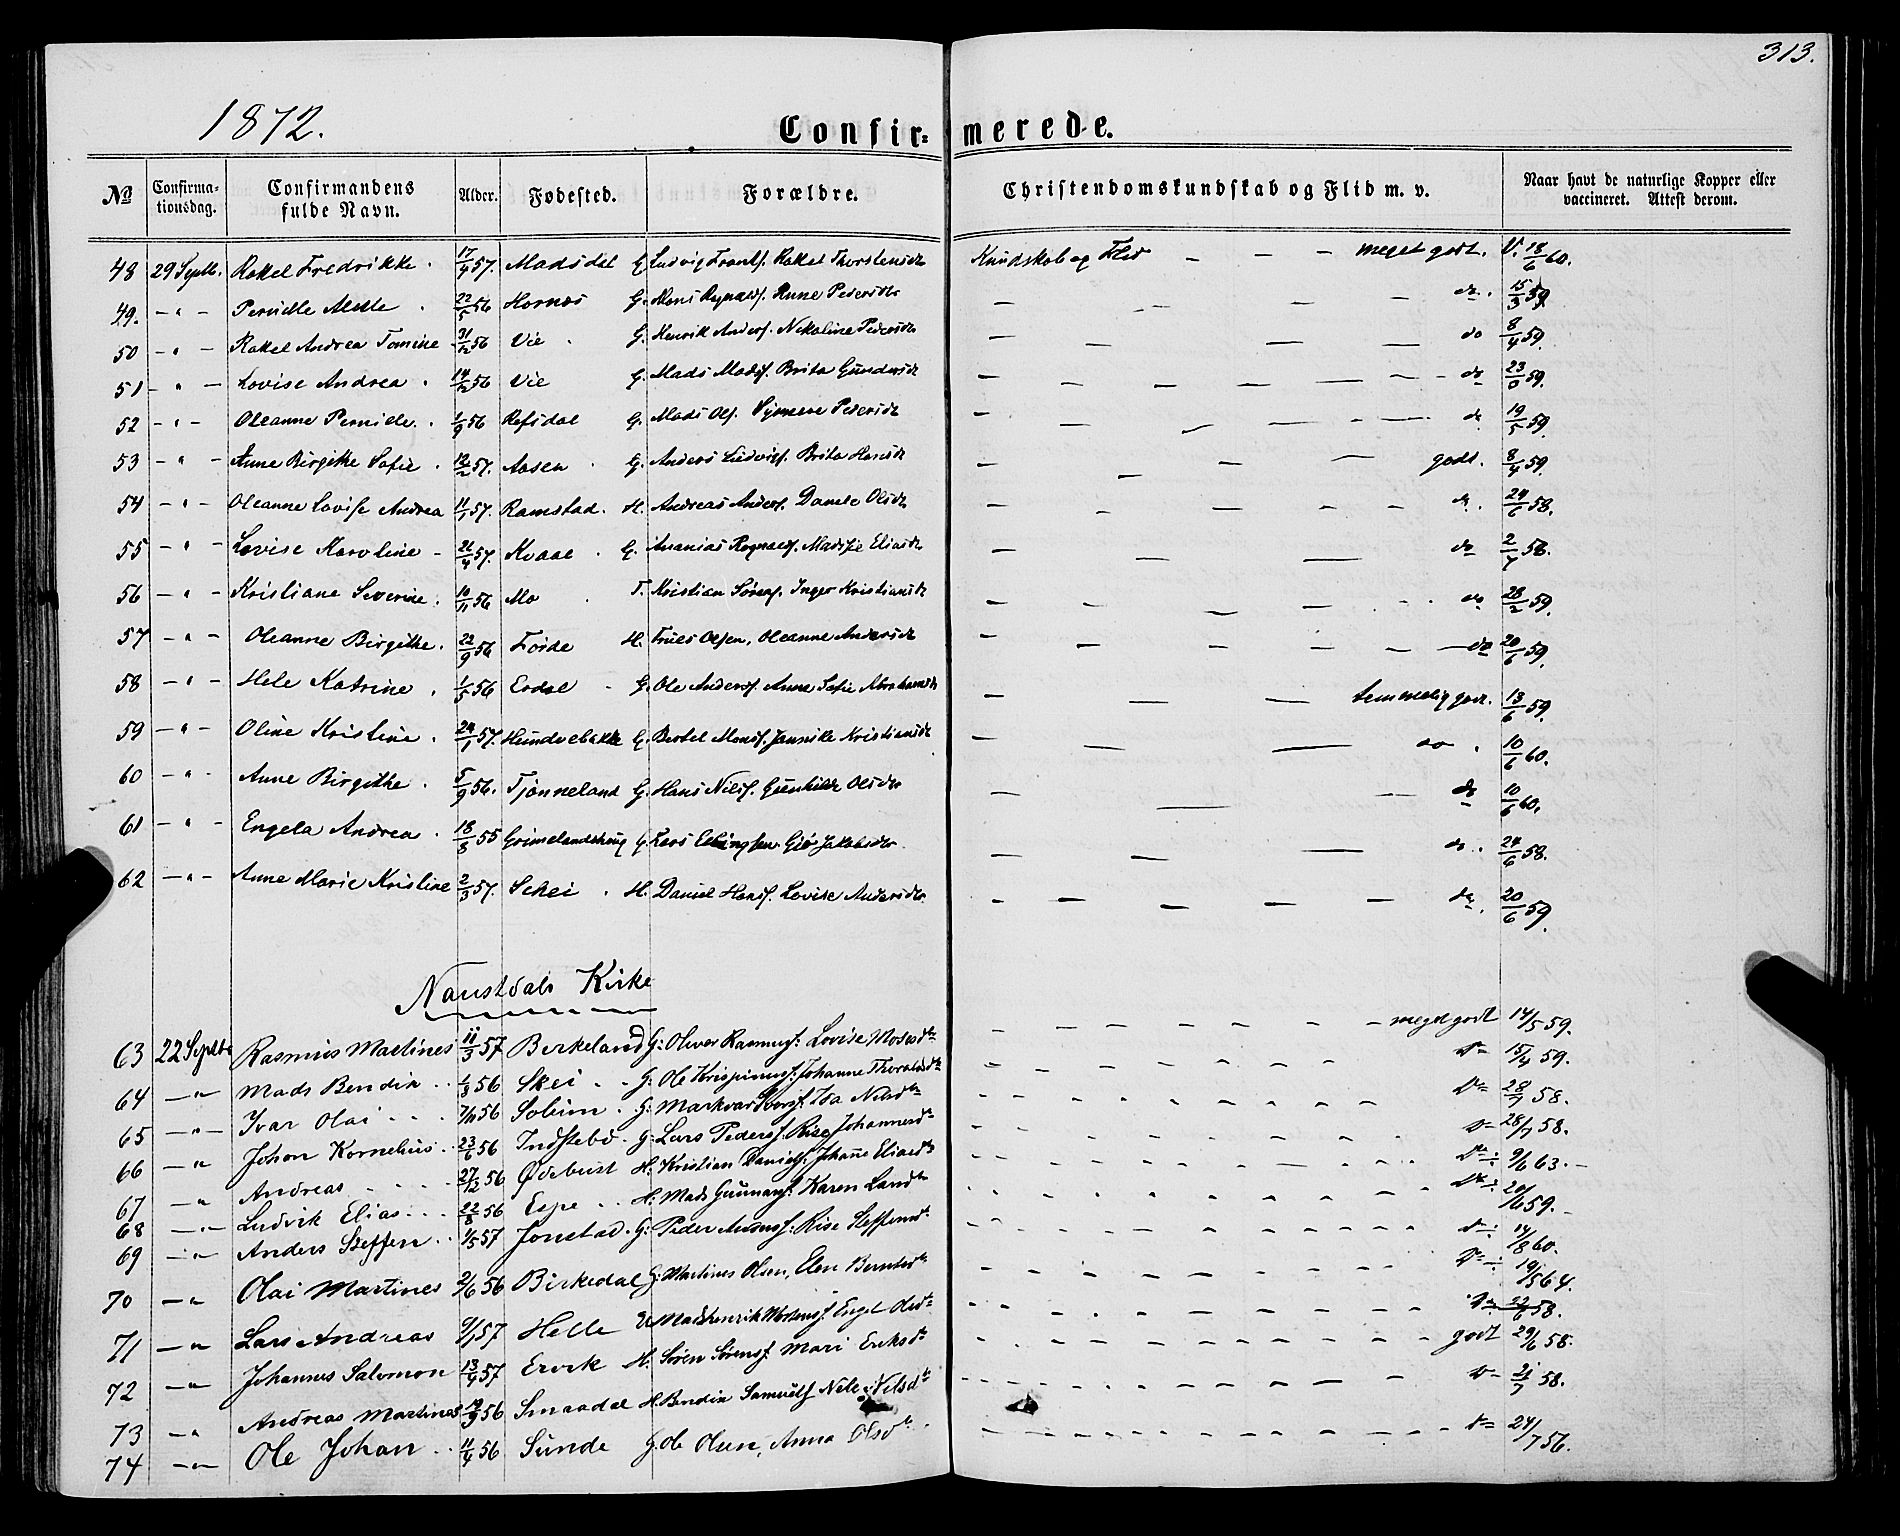 313.
1872.
Confir= merede.
No Confirma-tionsdag. Confirmandens fulde Navn. Alder. Fødested. Forældre. Christendomskundskab og Flid m. v. Naar havt de naturlige Kopper eller vaccineret. Attest derom.
48 29 Septb. Rakel Fredrikke. 17/4 57. Madsdal G. Ludvig Frants. Rakel Thorstensdr Kundskab og Flid — — — meget godt. V. 18/6 60.
49. — " — Pernille Mette . 22/5 56 Hornæs G. Mons Rognalds. Anne Pedersdr — — — — do. 15/3 59.
50 — " — Rakel Andrea Tomine 31/12 56 Vie . G. Henrik Anders. Nikoline Pedersdr — — — — do 8/4 59.
51 — " — Lovise Andrea . 14/12 56 Vie G. Mads Mads. Brita Gundersdr — — — — do 23/9 59.
52 — " — Oleanne Pernille. . 1/9 56 Refsdal G. Mads Ols. Pedersdr — — — — do 19/5 59.
53 — " — Anne Birgithe Sofie . 12/2 57. Aasen . G. Anders Ludvigs. Brita Hansdr — — — — godt. 8/4 59.
54 — " — Oleanne Lovise Andrea 11/1 57. Ramstad. H. Andreas Anders. Olsdr — — — — do. 24/6 58.
55 — " — Lovise Karoline — 22/4 57. Kvaal . G. Ananias Rognalds. Eliasdr — — — do 2/7 58.
56 — " — Kristiane Severine. 10/11 56 Mo . T. Kristian Sørens. Inger Kristiansdr — — — do 28/2 59.
57 — " — Oleanne Birgithe. 22/9 56 Førde H. Truls Olsen, Oleanne Andersdr — — — — do 20/6 59.
58 — " — Hele Katrine . 1/5 56 Erdal . G. Ole Anders. Anne Sofie Abrahamsdr — — — temmelig godt. 13/6 59.
59 — " — Oline Kristine . 24/1 57. Hundvebakke G. Bertel Mons. Jannike Kristiansdr — — — do . 10/6 60.
60 — " — Anne Birgithe . 5/9 56. Tjønneland G. Hans Nils. Gunhilde Olsdr — — — do 10/6 60.
61 — " — Engela Andrea . 18/8 55 Grimelandshaug G. Lars Jakobsdr — — — do. 24/6 58.
62 — " — Anne Marie Kristine 2/3 57. Schei . H. Daniel Hans. Lovise Andersdr. — — — — do. 20/6 59.
Naustdals Kirke
63 22 Septbr Rasmus Martines 11/3 57 Birkeland G: Oliver Rasmuss: Lovise Mosesdtr — — — meget godt 14/5 59.
64 — " Mads Bendik .. 1/3 56 Skei .. G: Ole Krispinuss: Johanne Thoralsdtr — — — Do 15/4 59.
65 — " — Ivar Olai .... 7/11 56 Solem . G: Markvard Ida Nilsdtr — — — Do 28/7 58.
66 — " Johan Kornelius . 23/6 56 Indstebø. G: Lars Peders: Rise Johannesdtr — — — Do 28/7 58.
67 — " Andreas .... 27/12 56 Ødebust H: Kristian Daniels: Johanne Eliasdtr — — — Do: 9/6 63. —
68 — " Ludvik Elias ... 22/8 56 Espe .. H: Mads Gunnars: Karen Larsdtr — — — Do: 20/6 59. —
69 — " Anders Steffen .. 1/5 57 Jonstad. G: Peder Anders: Rise Steffensdtr — — — Do: 14/8 60.
70 — " Olai Martines 2/6 56 Birkedal G: Martines Olsen, Elen Berntsdtr — — — Do: 19/5 64.
71 — " Lars Andreas 9/1 57 Helle Mads Henrik Engel Olsdtr — — — Do 22/6 58.
72 — " Johannes Salomon 13/4 57 Ervik H: Søren Sørens: Mari Eriksdtr — — — godt 29/6 58.
73 — " Andreas Martines 56 Smaadal H. Bendik Samuels Nilsdtr — — — Do 2/7 58.
74 — " Ole Johan .. 11/4 56 Sunde G. Ole Olsen, Anna Olsdtr. — — — Do 24/7 56.